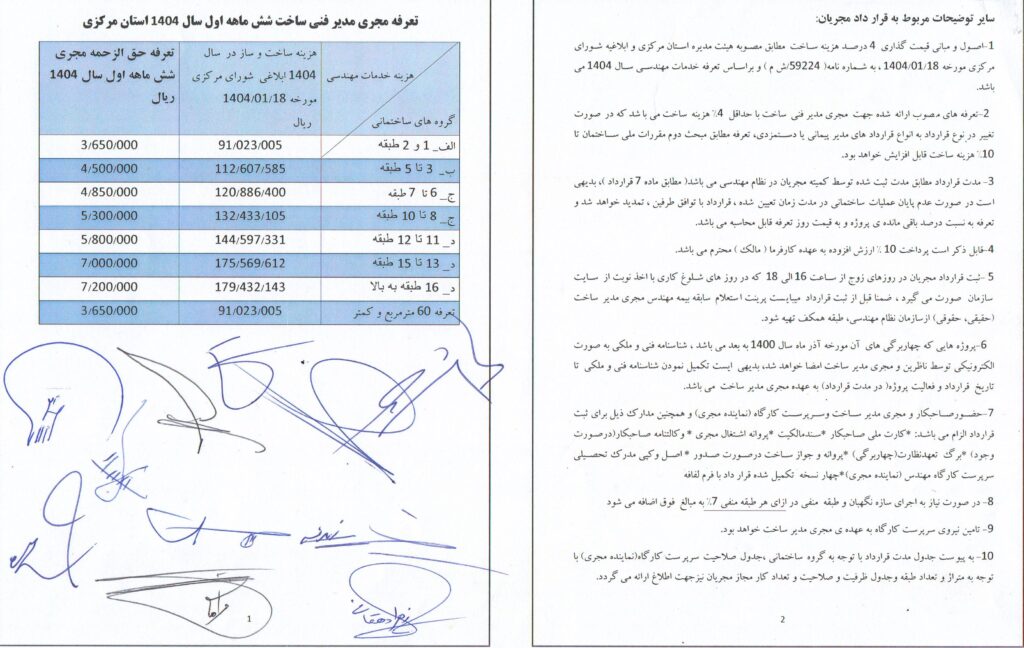 تعرفه مجری مدیر فنی ساخت شش ماهه اول سال 1404 استان مرکزی
هزینه خدمات مهندسی
گروه های ساختمانی
هزینه ساخت و ساز در سال
1404 ابلاغی شورای مرکزی
مورخه 1404/01/18
ریال
تعرفه حق الزحمه مجری
شش ماهه اول سال 1404
ریال
الف_ 1 و 2 طبقه 91/023/005 3/650/000
ب_ 3 تا 5 طبقه 112/607/585 4/500/000
ج_ 6 تا 7 طبقه 120/886/400 4/850/000
ج_ 8 تا 10 طبقه 132/433/105 5/300/000
د_ 11 تا 12 طبقه 144/597/331 5/800/000
د_ 13 تا 15 طبقه 175/569/612 7/000/000
د_ 16 طبقه به بالا 179/432/143 7/200/000
تعرفه 60 مترمربع و کمتر 91/023/005 3/650/000
1
سایر توضیحات مربوط به قرار داد مجریان:
1-اصول و مبانی قیمت گذاری 4 درصد هزینه ساخت مطابق مصوبه هیئت مدیره استان مرکزی و ابلاغیه شورای
مرکزی مورخه 1404/01/18 ، به شماره نامه( 59224/ش م ) و براساس تعرفه خدمات مهندسی سال 1404 می
باشد.
2-تعرفه های مصوب ارائه شده جهت مجری مدیر فنی ساخت با حداقل 4٪ هزینه ساخت می باشد که در صورت
تغییر در نوع قرارداد به انواع قرارداد های مدیر پیمانی یا دستمزدی، تعرفه مطابق مبحث دوم مقررات ملی ساختمان تا
10٪ هزینه ساخت قابل افزایش خواهد بود.
3- مدت قرارداد مطابق مدت ثبت شده توسط کمیته مجریان در نظام مهندسی می باشد( مطابق ماده 7 قرارداد )، بدیهی
است در صورت عدم پایان عملیات ساختمانی در مدت زمان تعیین شده ، قرارداد با توافق طرفین ، تمدید خواهد شد و
تعرفه به نسبت درصد باقی مانده ی پروژه و به قیمت روز تعرفه قابل محاسبه می باشد.
4-قابل ذکر است پرداخت 10 ٪ ارزش افزوده به عهده کارفرما ( مالک ) محترم می باشد.
5 -ثبت قرارداد مجریان در روزهای زوج از ساعت 16 الی 18 که در روز های شلوغ کاری با اخذ نوبت از سایت
سازمان صورت می گیرد ، ضمنا قبل از ثبت قرارداد میبایست پرینت استعلام سابقه بیمه مهندس مجری مدیر ساخت
(حقیقی، حقوقی) ازسازمان نظام مهندسی، طبقه همکف تهیه شود.
6-پروژه هایی که چهاربرگی های آن مورخه آذر ماه سال 1400 به بعد می باشد ، شناسنامه فنی و ملکی به صورت
الکترونیکی توسط ناظرین و مجری مدیر ساخت امضا خواهد شد، بدیهی ایست تکمیل نمودن شناسنامه فنی و ملکی تا
تاریخ قرارداد و فعالیت پروژه( در مدت قرارداد) به عهده مجری مدیر ساخت می باشد.
7-حضورصاحبکار و مجری مدیر ساخت وسرپرست کارگاه (نماینده مجری) و همچنین مدارک ذیل برای ثبت
قرارداد الزام می باشد: *کارت ملی صاحبکار *سندمالکیت *پروانه اشتغال مجری * وکالتنامه صاحبکار(درصورت
وجود) *برگ تعهدنظارت(چهاربرگی) *پروانه و جواز ساخت درصورت صدور * اصل وکپی مدرک تحصیلی
سرپرست کارگاه مهندس (نماینده مجری)*چهار نسخه تکمیل شده قرار داد با فرم لفافه
8- در صورت نیاز به اجرای سازه نگهبان و طبقه منفی در ازای هر طبقه منفی 7٪ به مبالغ فوق اضافه می شود
9- تامین نیروی سرپرست کارگاه به عهده ی مجری مدیر ساخت خواهد بود.
10- به پیوست جدول مدت قرارداد با توجه به گروه ساختمانی ،جدول صلاحیت سرپرست کارگاه(نماینده مجری) با
توجه به متراژ و تعداد طبقه وجدول ظرفیت و صلاحیت و تعداد کار مجاز مجریان نیزجهت اطلاع ارائه می گردد.
2